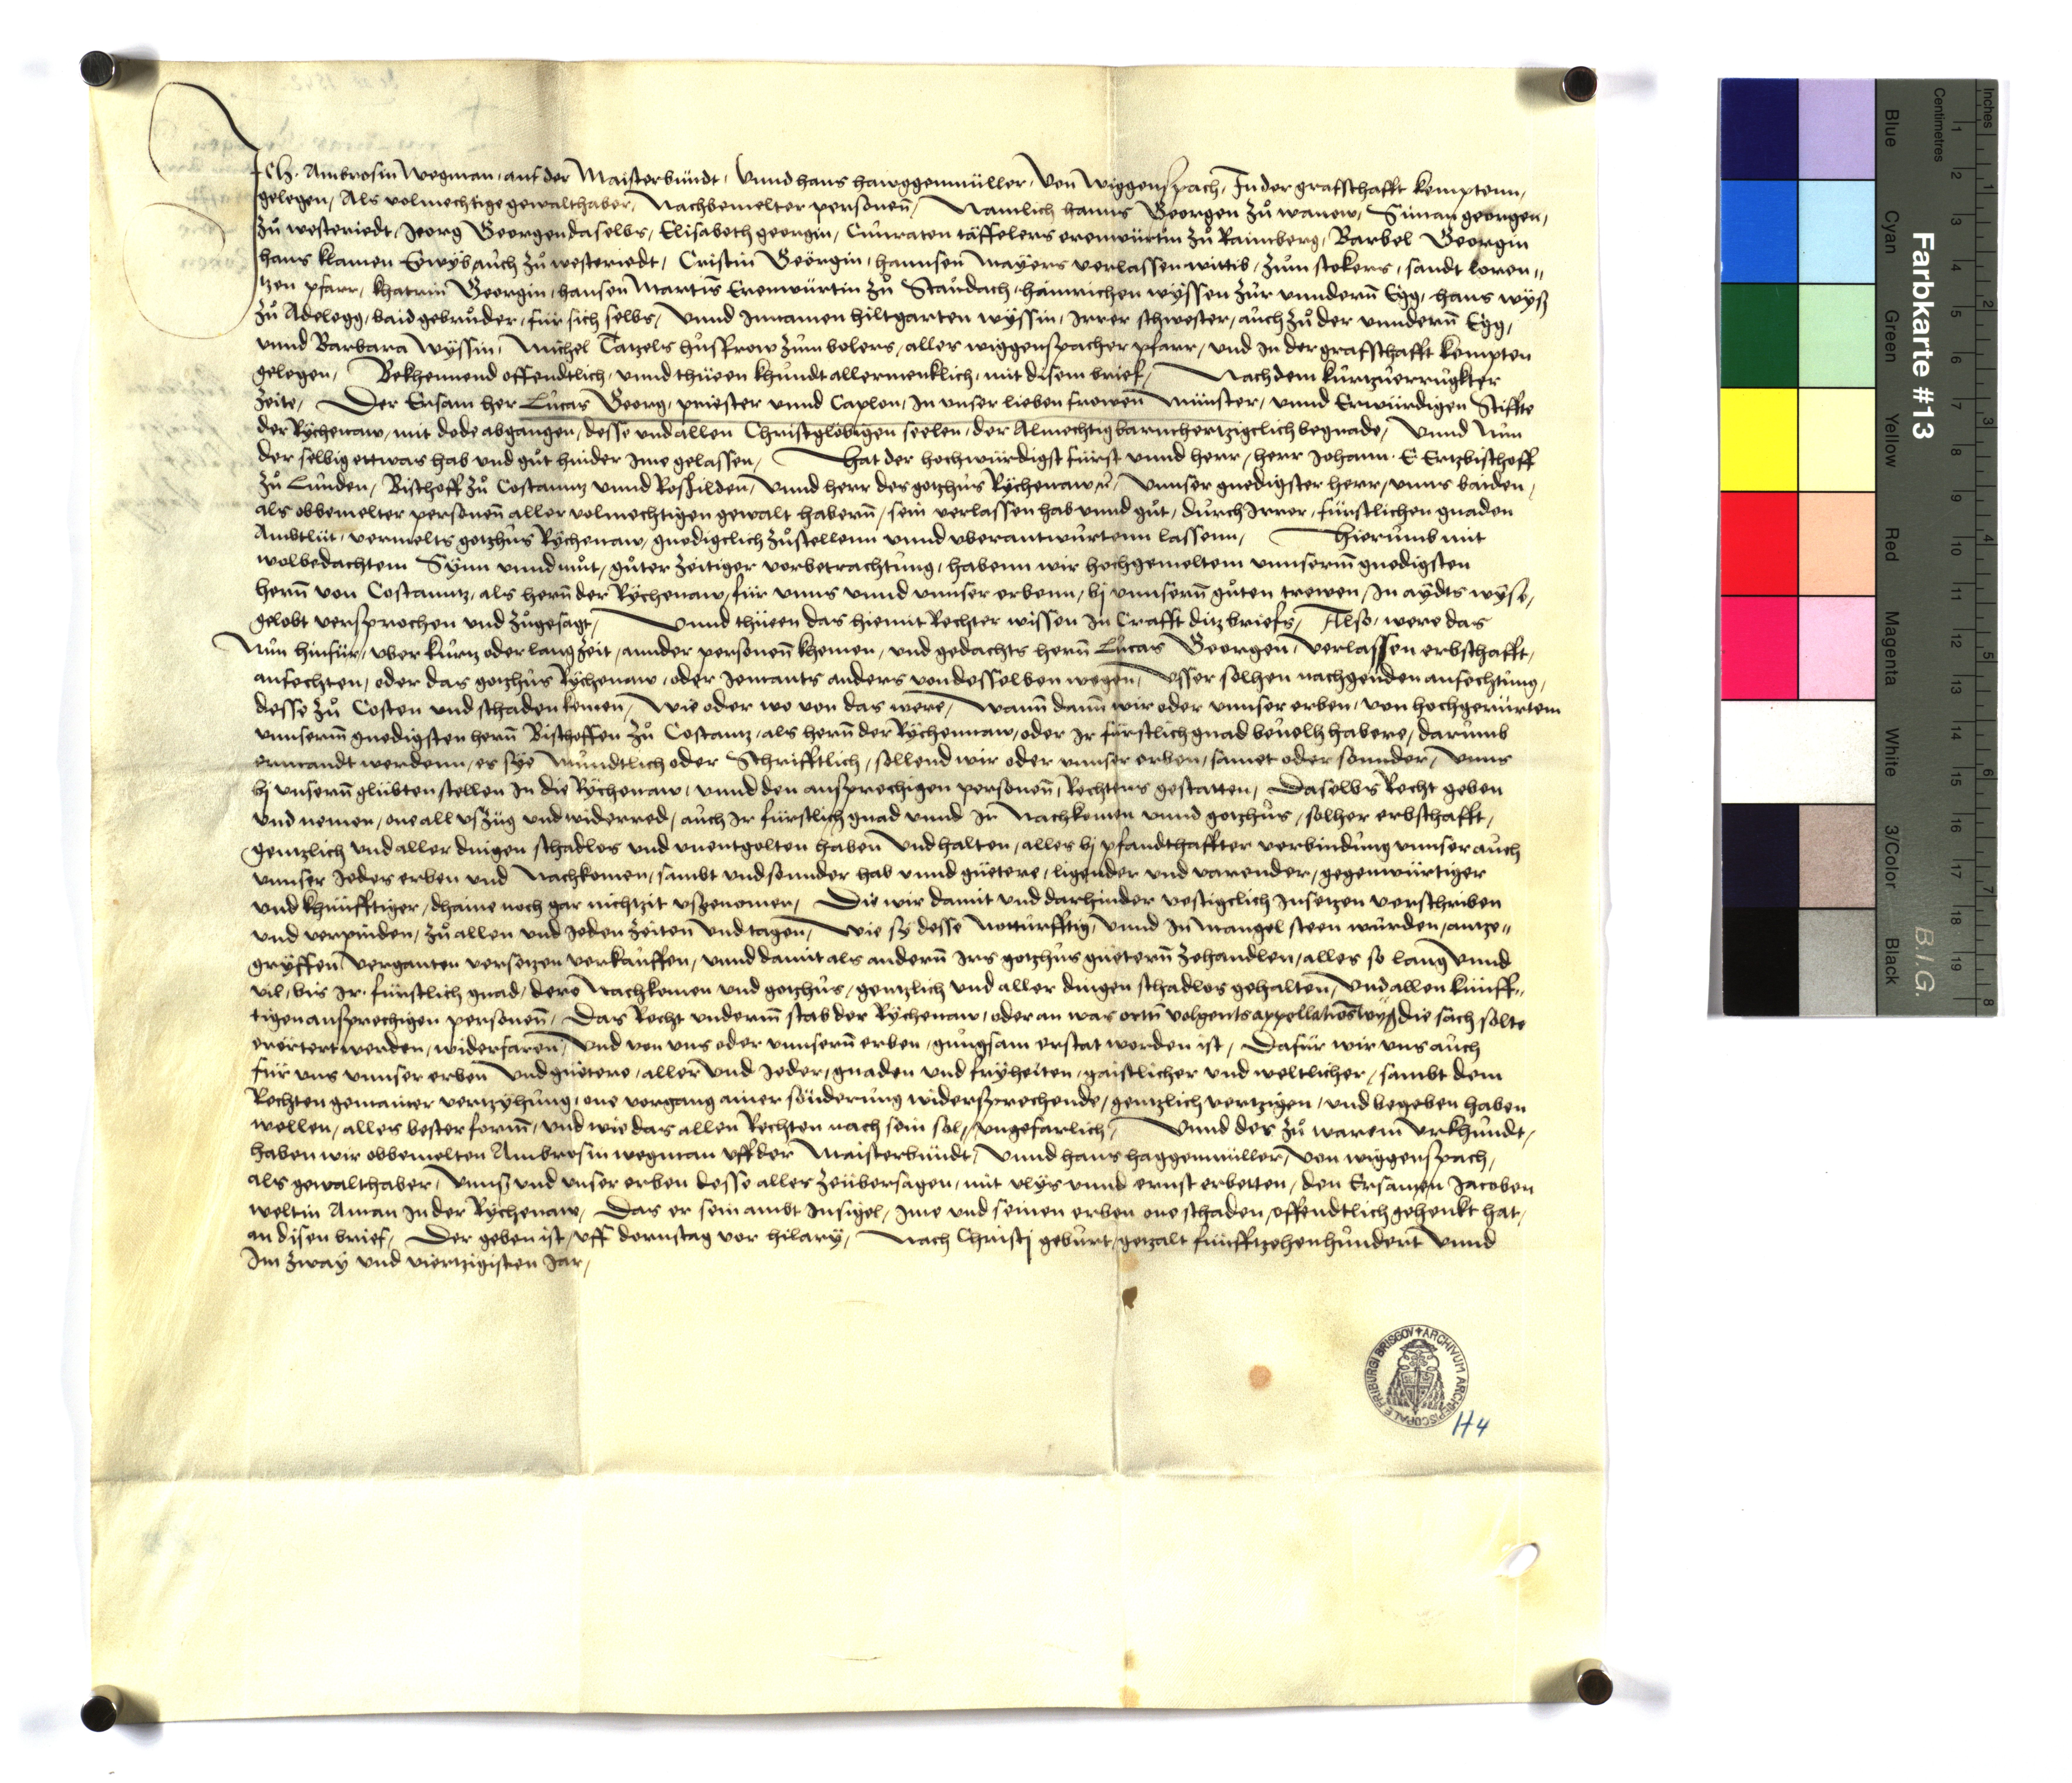 Ich Ambrosin Wegman auf der Maisterbündt, Vnnd hans hawggenmüller, von Wiggenspach, In der grafschafft kemptenn,
gelegen, Als volmechtige gewalthaber, Nachbemelter personen̄, Namlich hanns Georgen zů wanew, Siman georgen,
zů westeriedt, Jeorg Georgen daselbs, Elisabeth georgin, Cůnraten täffelers eeenwürtin zů Rainberg, Barbel Georgin
hans klamen Eewÿb aůch zů westeriedt, Cristin Geörgin, hannsen Mayers verlassen wittib, zům stokers, sandt loren„
tzen pfarr, khatrin Georgin, hansen Martis Eeenwürtin zů Staůdach, hainrichen wÿssen zůr vnndern̄ Egg, hans wÿsß
zů Adelegg, baid gebrůder, für sich selbs, Vnnd Innamen hiltgarten wÿssin, Irrer schwester, aůch zů der vnndern̄ Egg,
vnnd Barbara Wÿssin, Michel Tatzels hůsfrow zům bolers, alles wiggenspacher pfarr, vnd In der grafschafft kempten
gelegen, Bekhennend offendtlich, vnnd thüeen khůndt allermenklich, mit disem brief, Nach dem kůrtzůerrůgkter
Zeite, Der Ersam her Lůcas Georg, priester vnnd Caplon, In vnser lieben frowen̄ Münster, vnnd Erwürdigen Stiffte
der Rÿchenaw, mit dode abgangen, desse vnd allen Christglöbigen seelen, der Almechtig barmhertzigclich begnade, Vnnd Nůn
der selbig ettwas hab vnd gůt hinder Ime gelassen, Hat der hochwürdigst fürst vnnd herr, herr Johann E Ertzbischoff
zů Lůnden, Bischoff zů Costanntz vnnd Roskilden, Vnnd herr des gotzhůs Rÿchenaw, Vnnser gnedigster herr, vnns baiden,
als obbemelter personen̄ aller volmechtigen gewalt habern̄, sein verlassen hab vnnd gůt, důrch Irrer, fürstlichen gnaden
Ambtlüt, vermelts gotzhůs Rÿchenaw, gnedigclich zůstellenn vnnd vberantwůrtenn lassenn, Hierůmb mit
wolbedachtem Sÿnn vnnd můt, gůter zeitiger vorbetrachtůng, habenn wir hochgemeltem vnnserm̄ gnedigsten
hern̄ von Costanntz, als hern̄ der Rÿchenaw, für vnns vnnd vnnser erbenn, bj vnnsern̄ gůten trewen, In aÿdts wÿse,
gelobt versprochen vnd zůgesagt, Vnnd thüeen das hiemit Rechter wissen In Crafft ditz briefs, Also, were das
Nůn hinfür, vber kůrtz oder lang zeit, annder personen̄ khemen, vnd gedachts hern̄ Lůcas Georgen, Verlassen erbschafft,
anfechten, oder das gotzhůs Rÿchenaw, oder Jemants anders von desselben wegen, Vsser solhen nachgenden anfechtůng,
desse zů Costen vnd schaden kemen, Wie oder wo von das were, Wann̄ dann̄ wir oder vnnser erben, von hochgerürtem
vnnserm̄ gnedigsten hern̄ Bischoffen zů Costantz, als hern̄ der Rÿchennaw, oder Ir fürstlich gnad beuelh habere, darůmb
ermandt werdenn, es sÿe Můndtlich oder Schrifftlich, sollend wir oder vnnser erben, samet oder sonnder, Vnns
bj vnsern̄ glübten stellen In die Rÿchenaw, vnnd den ansprechigen personen̄, Rechttens gestatten, Daselbs Recht geben
vnd nemen, one all vszüg vnd widerred, aůch Ir fürstlich gnad vnnd Ir Nachkomen vnnd gotzhůs, solher erbschafft,
gentzlich vnd aller dingen schadlos vnd vnentgolten haben Vnd halten, alles bj pfandthaffter verbindůng vnnser aůch
vnnser Jedes erben vnd Nachkomen, sambt vnd sonnder hab vnnd güetere, ligender vnd varender, gegenwürtiger
vnd khünfftiger, dhaine noch gar nichtzit vszenomen, Die wir damit vnd darhinder vestigclich Insetzen verschriben
vnd verpinden, zů allen vnd Jeden zeiten Vnd tagen, Wie sÿ desse Nottürfftig, Vnnd In mangel steen wůrden, antze„
grÿffen Verganten versetzen verkauffen, vnnd damit als andern̄ Irs gotzhůs güetern̄ zehandlen, alles so lang Vnnd
vil, bis Ir fürstlich gnad, dere Nachkomen vnd gotzhůs, gentzlich vnd aller dingen schadlos gehalten, Vnd allen künff„
tigen ansprechigen personen̄, Das Recht vnderm̄ stab der Rÿchenaw, oder an was ortn̄ volgents appellationswÿß die sach solte
erörtert werden, widerfaren, Vnd von vns oder vnnsern̄ erben, gnůgsam erstat worden ist, Dafür wir vns aůch
für vns vnnser erben Vnd güetere, aller Vnd Jeder, gnaden vnd frÿheiten, gaistlicher vnd weltlicher, sambt dem
Rechten gemainer vertzÿhůng, one vorgang ainer sönderůng widersprechende, gentzlich vertzigen, vnd begeben haben
wellen, alles bester form̄, vnd wie das allen Rechten nach sein sol, vngefarlich, Vnnd des zů warem Vrkhůndt,
haben wir obbemelten Ambrosin wegman vff der Maisterbündt, Vnnd hans haggenmüller, Von wiggenspach,
als gewalthaber, Vnns vnd vnser erben desse alles zeübersagen, mit vlÿs vnnd ernst erbetten, den Ersamen Jacoben
weltin Aman In der Rÿchenaw, Das er sein ambt Insigel, Ime vnd seinen erben one schaden, offendtlich gehenkt hat,
an disen brief, Der geben ist, vff dornstag vor hilarÿ, Nach Christj gebůrt, getzalt fünfftzehenhůndert Vnnd
Im zwaÿ vnd viertzigisten Jar,
ARCHIVUM ARCHIEPISCOPALE FRIBURGI BRISGOV
H4
Farbkarte #13
B.I.G.
Centimetres
Inches
Blue
Cyan
Green
Yellow
Red
Magenta
White
3/Color
Black
1 2 3 4 5 6 7 8 9 10 11 12 13 14 15 16 17 18 19
1 2 3 4 5 6 7 8